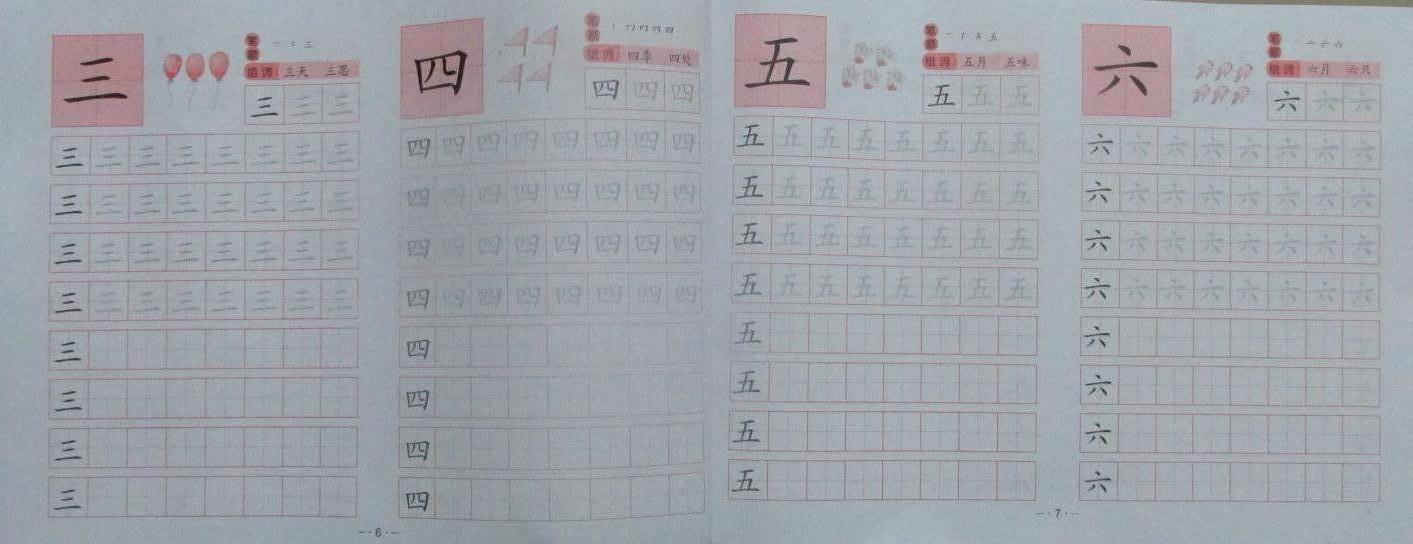 三
笔顺 一 二 三
组词 三天 三思
三 三 三
三 三 三 三 三 三 三 三
三 三 三 三 三 三 三 三
三 三 三 三 三 三 三 三
三 三 三 三 三 三 三 三
三
三
三
三
四
笔顺
组词 四季 四处
四 四 四
四 四 四 四 四 四 四 四
四 四 四 四 四 四 四 四
四 四 四 四 四 四 四 四
四 四 四 四 四 四 四 四
四
四
四
四
- · 6 · -
五
笔顺
组词 五月 五味
五 五 五
五 五 五 五 五 五 五 五
五 五 五 五 五 五 五 五
五 五 五 五 五 五 五 五
五 五 五 五 五 五 五 五
五
五
五
五
六
笔顺
组词 六月 六只
六 六 六
六 六 六 六 六 六 六 六
六 六 六 六 六 六 六 六
六 六 六 六 六 六 六 六
六 六 六 六 六 六 六 六
六
六
六
六
- · 7 · -